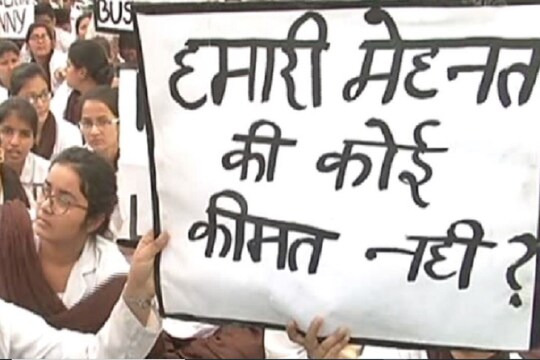 NNY
BUS
हमारी मेहनत
की कोई
कीमत नही ?